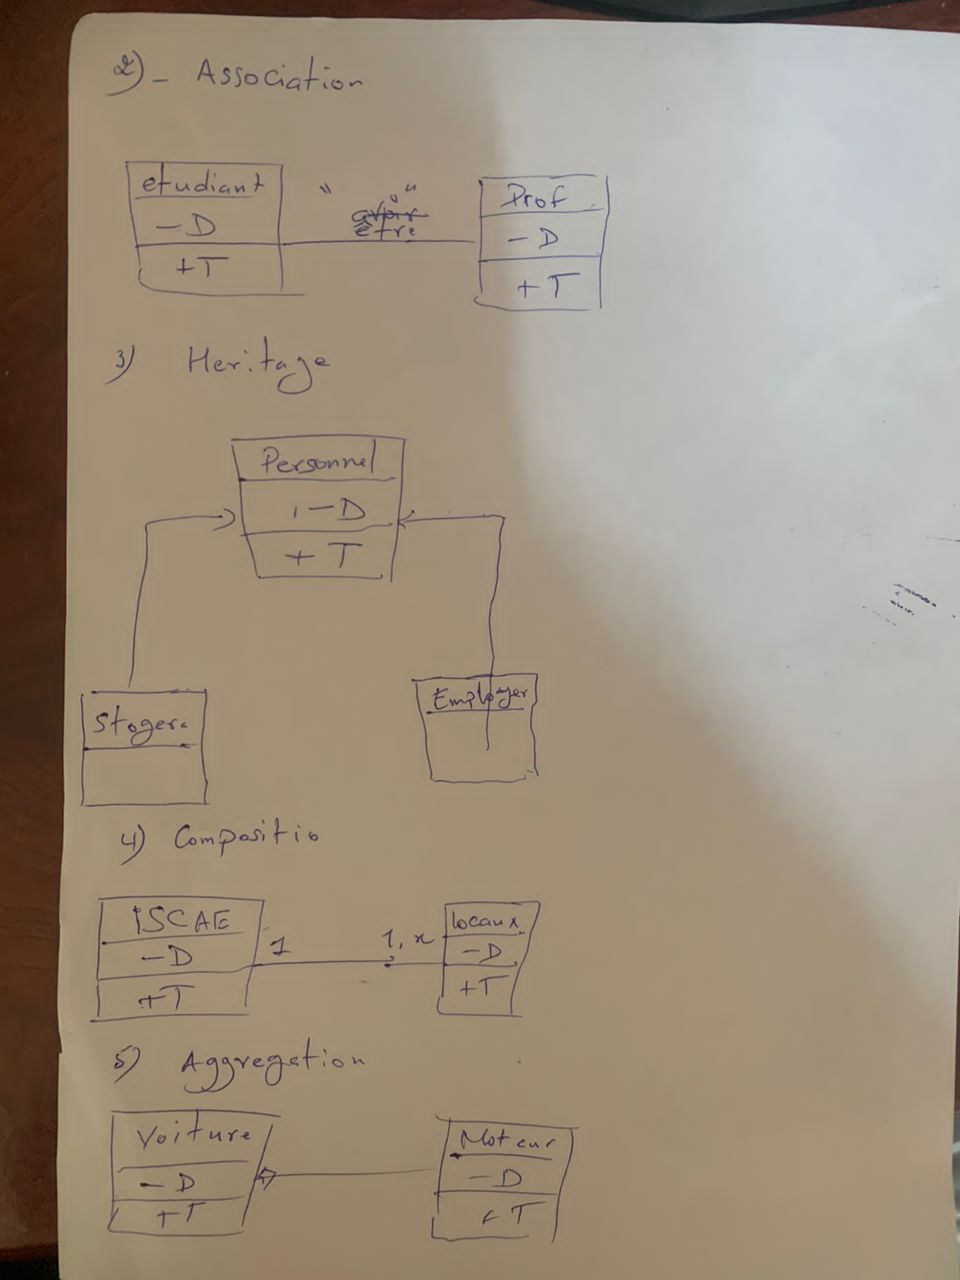 2)- Association
etudiant
- D
+T
" "
être
Prof
- D
+ T
3) Heritage
Personnel
- D
+ T
Stagere
Employer
4) Compositio
ISCAE
- D
+T
1
1, n
locaux
- D
+T
5) Aggregation
Voiture
- D
+T
Moteur
- D
+ T